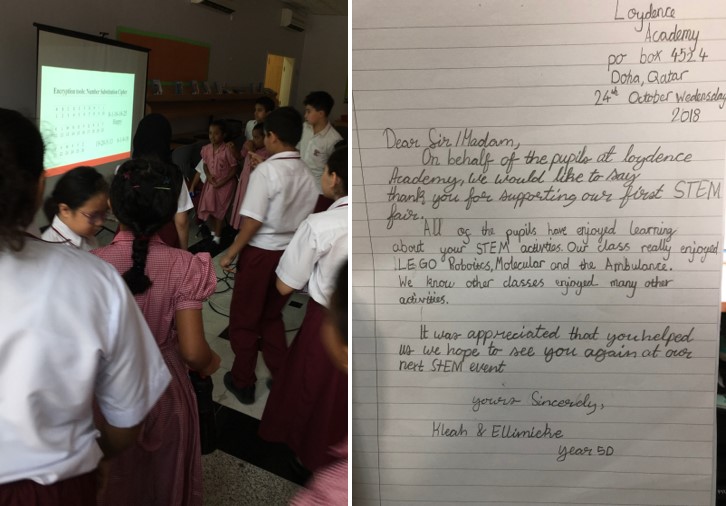 Encryption tools: Number Substitution Cipher
Loydence
Academy
po box 4524
Doha, Qatar
24th October Wedensday
2018
Dear Sir/Madam,
On behalf of the pupils at loydence
Academy, we would like to say
thank you for supporting our first STEM
fair.
All og the pupils have enjoyed learning
about your STEM activities. Our class really enjoyed
LEGO Robotics, Molecular and the Ambulance.
We know other classes enjoyed many other
activities.
It was appreciated that you helped
us we hope to see you again at our
next STEM event
yours Sincerely,
Kleah & Ellimicke
year 5D